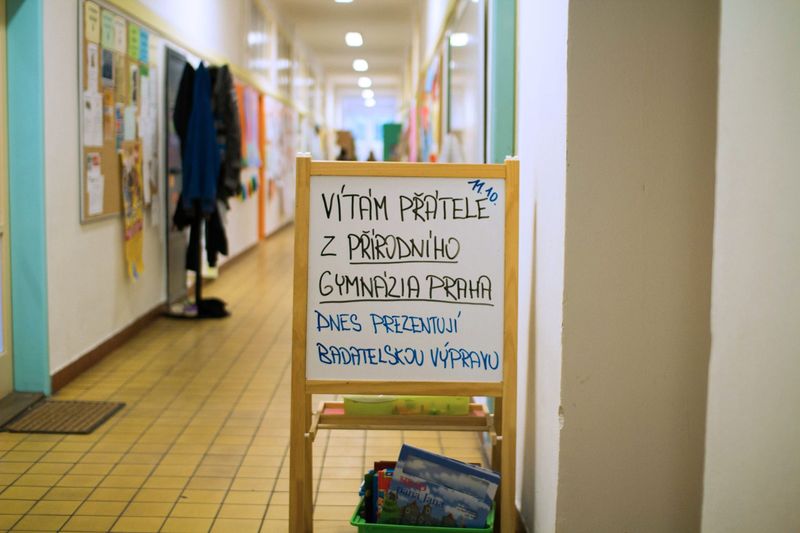 11.10.
VÍTÁM PŘÁTELE
Z PŘÍRODNÍHO
GYMNÁZIA PRAHA
DNES PREZENTUJÍ
BADATELSKOU VÝPRAVU